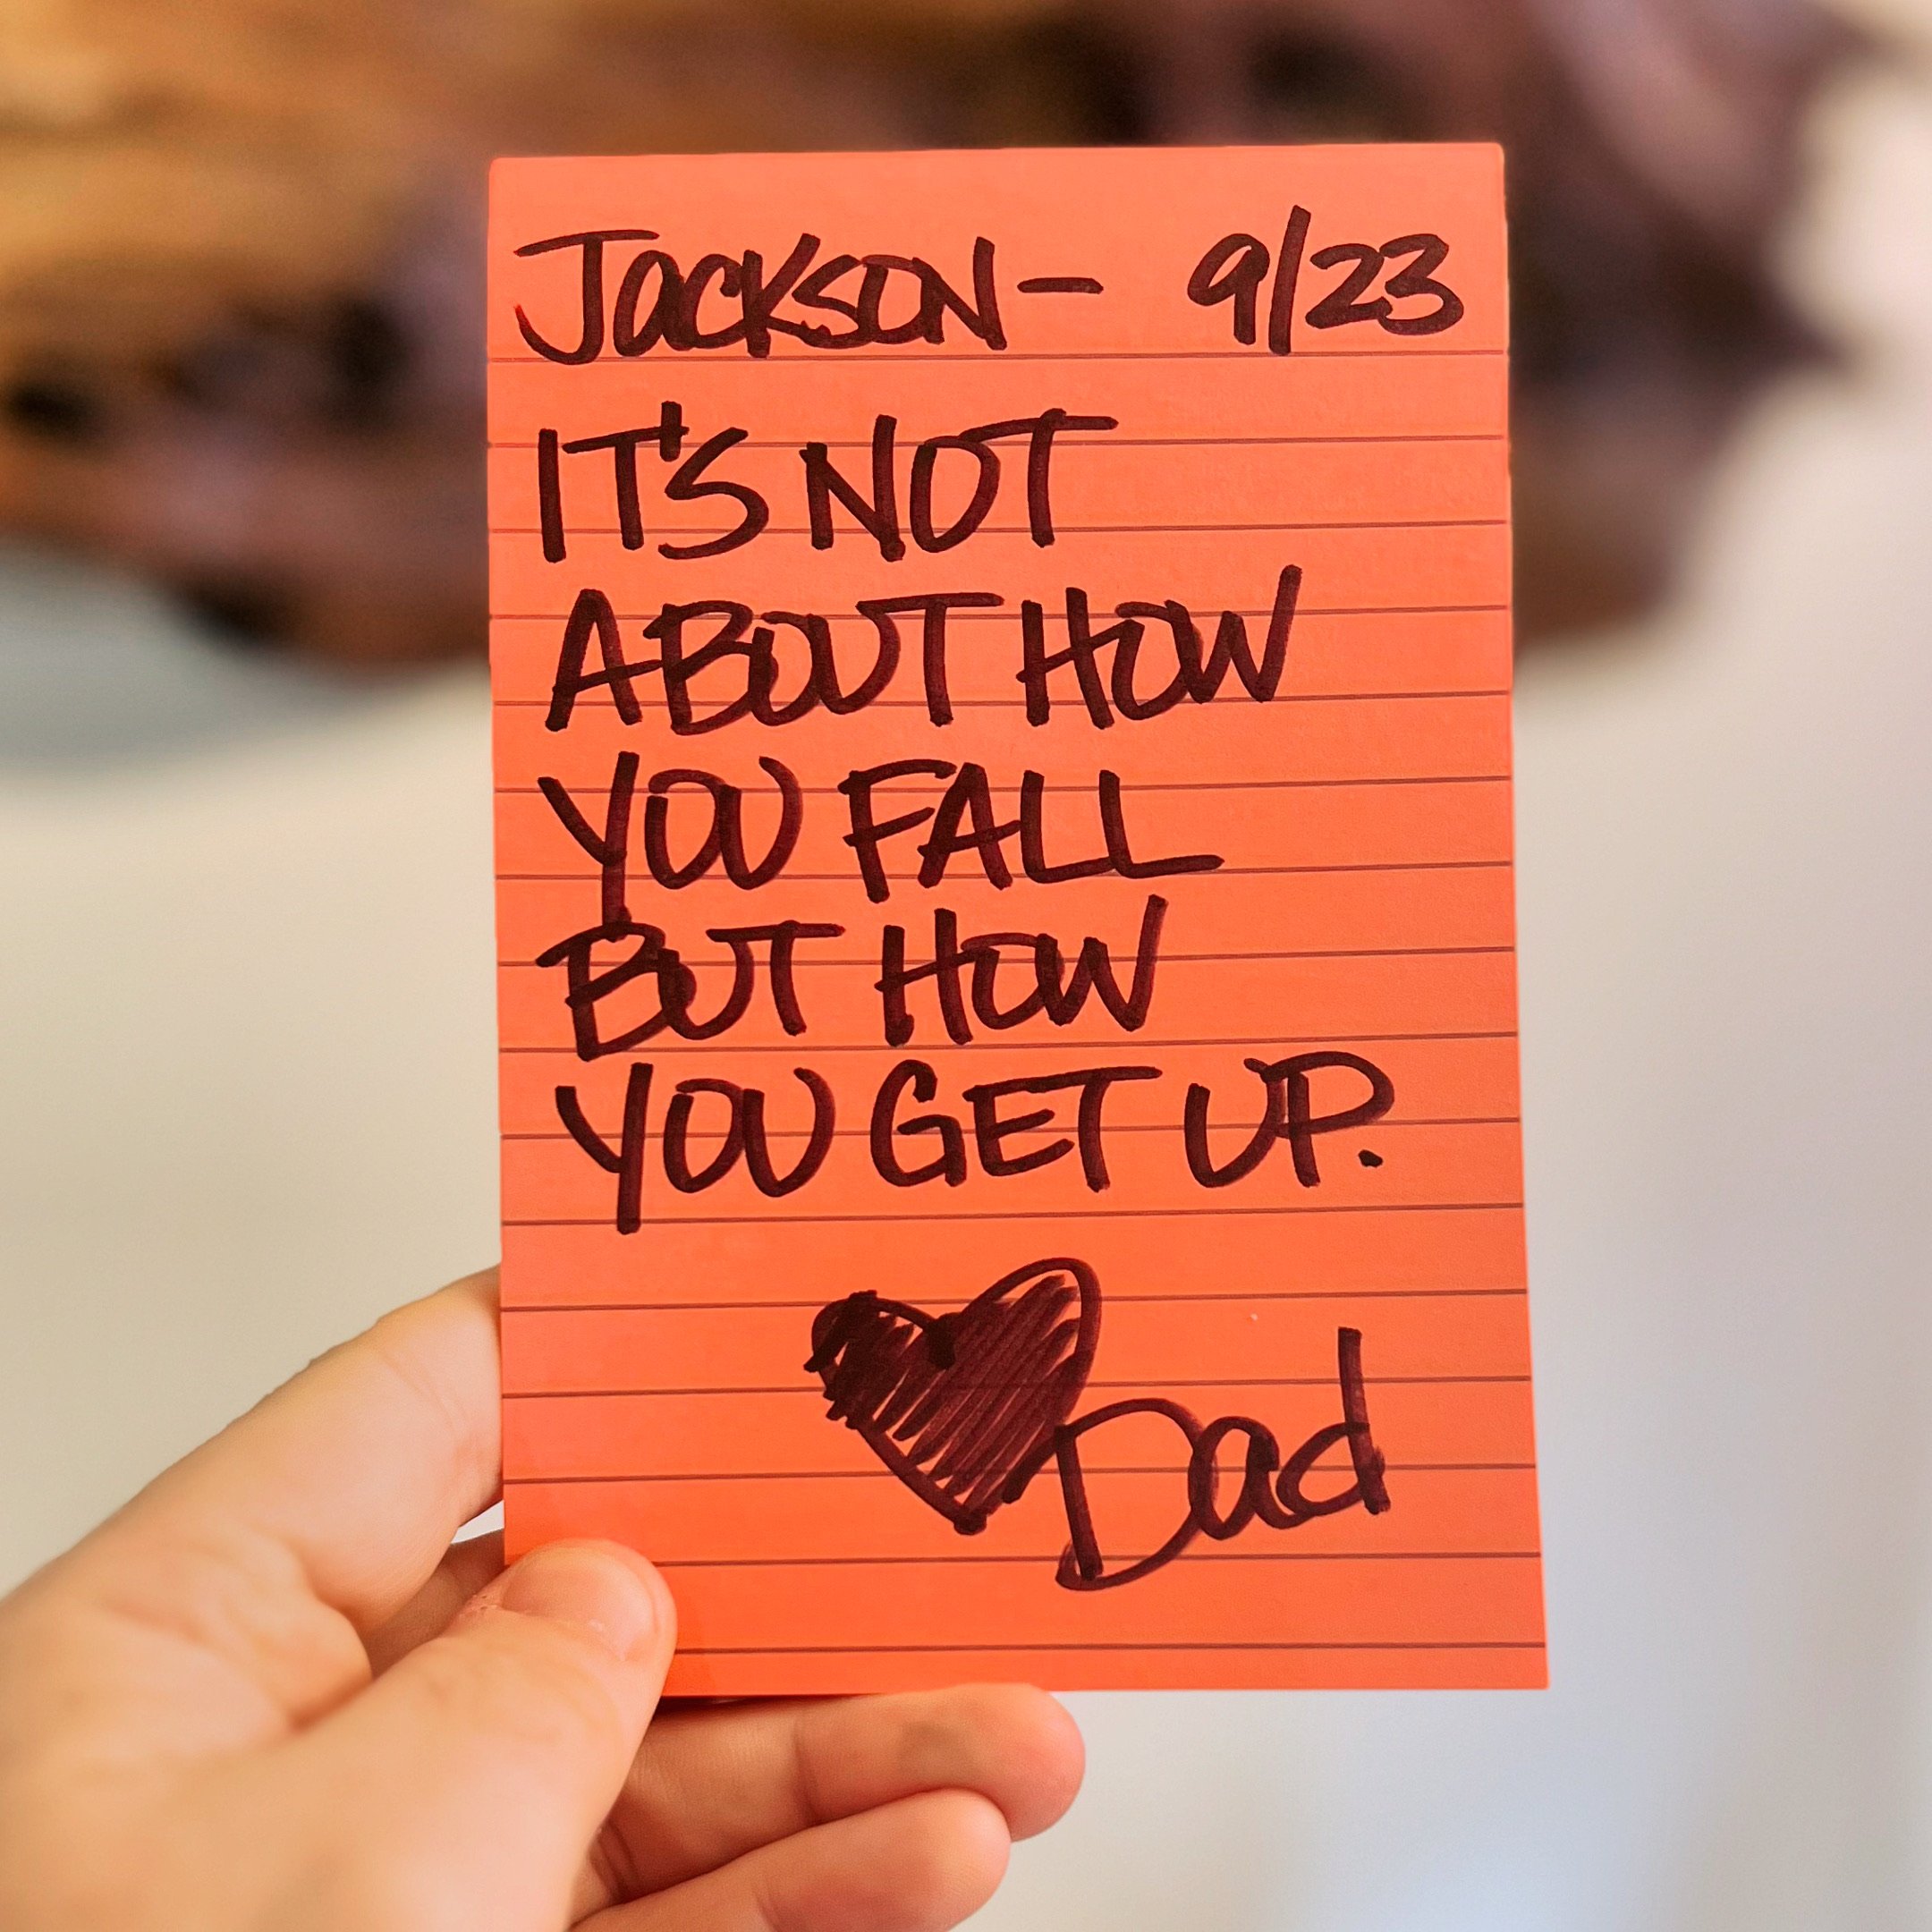 Jackson – 9/23
IT'S NOT
ABOUT HOW
YOU FALL
BUT HOW
YOU GET UP.
Dad